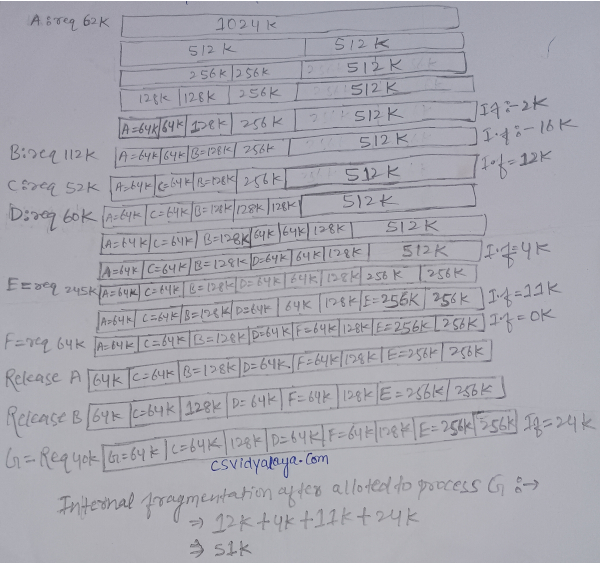 A:req 62K 1024K
512K 512K
256K 256K 512K
128K 128K 256K 512K
A=64K 64K 128K 256K 512K I.f:-2K
B:req 112K A=64K 64K B=128K 256K 512K I.f:-16K
C:req 52K A=64K C=64K B=128K 256K 512K I.f=12K
D:req 60K A=64K C=64K B=128K 128K 128K 512K
A=64K C=64K B=128K 64K 64K 128K 512K
A=64K C=64K B=128K D=64K 64K 128K 512K I.f=4K
E=req 245K A=64K C=64K B=128K D=64K 64K 128K 256K 256K
A=64K C=64K B=128K D=64K 64K 128K E=256K 256K I.f=11K
F=req 64K A=64K C=64K B=128K D=64K F=64K 128K E=256K 256K I.f=0K
Release A 64K C=64K B=128K D=64K F=64K 128K E=256K 256K
Release B 64K C=64K 128K D=64K F=64K 128K E=256K 256K
G=Req 40K G=64K C=64K 128K D=64K F=64K 128K E=256K 256K If=24K
csvidyalaya.com
Internal fragmentation after alloted to process G :→
⇒ 12K+4K+11K+24K
⇒ 51K